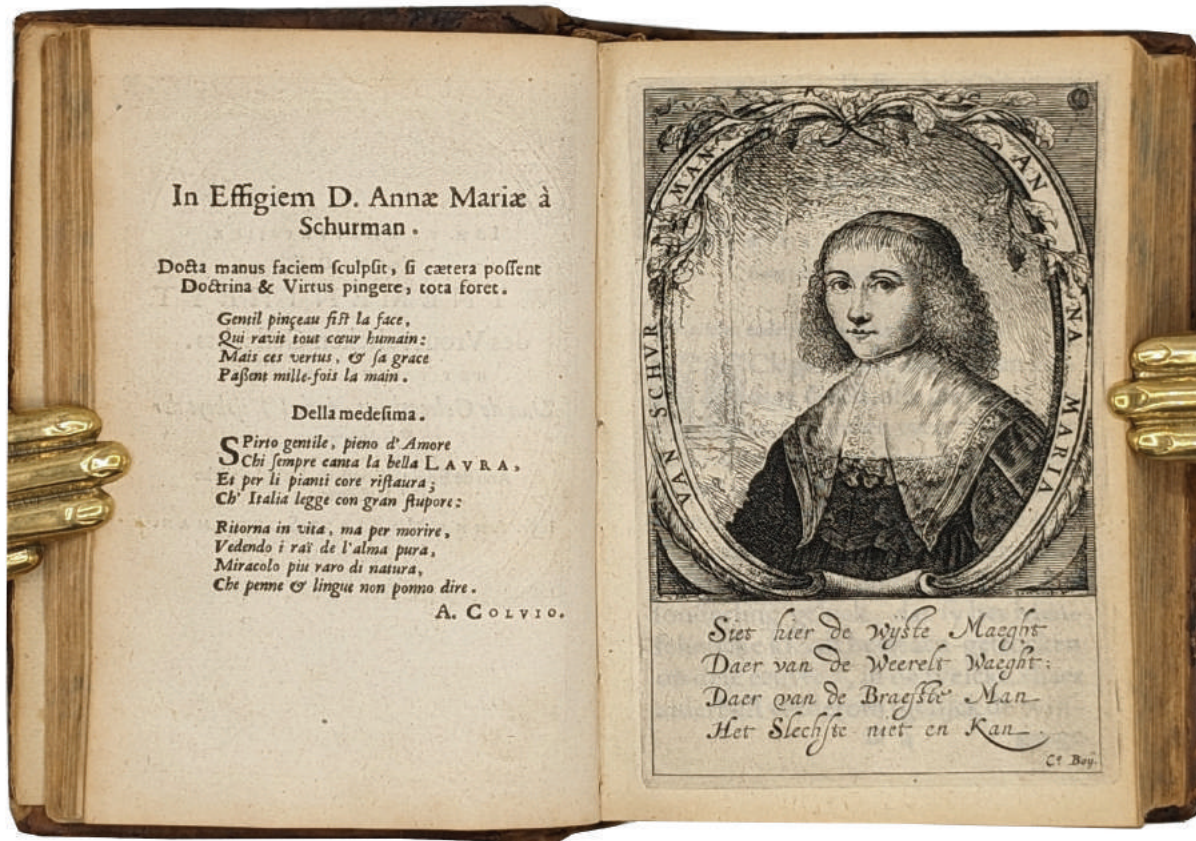 In Effigiem D. Annæ Mariæ à
Schurman.
Docta manus faciem ſculpſit, ſi cætera poſſent
Doctrina & Virtus pingere, tota foret.
Gentil pinçeau fiſt la face,
Qui ravit tout cœur humain:
Mais ces vertus, & ſa grace
Paſſent mille-fois la main.
Della medeſima.
SPirto gentile, pieno d'Amore
Chi ſempre canta la bella LAVRA,
Et per li pianti core riſtaura;
Ch' Italia legge con gran ſtupore:
Ritorna in vita, ma per morire,
Vedendo i raï de l'alma pura,
Miracolo piu raro di natura,
Che penne & lingue non ponno dire.
A. COLVIO.
AN NA. MARIA VAN SCHVR MAN.
Siet hier de Wyſte Maeght
Daer van de Weerelt Waeght:
Daer van de Braefſte Man
Het Slechſte niet en Kan.
Cᵗ Boy.